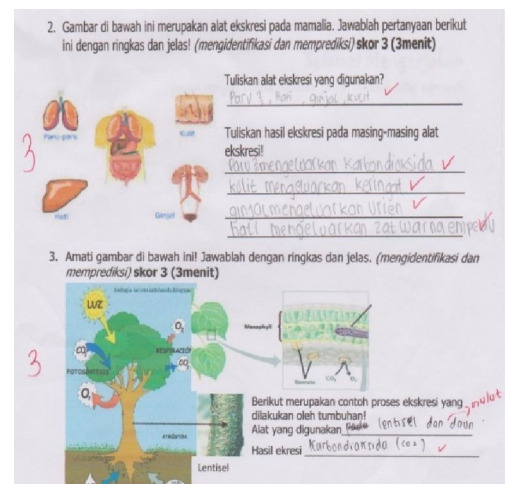 2. Gambar di bawah ini merupakan alat ekskresi pada mamalia. Jawablah pertanyaan berikut
ini dengan ringkas dan jelas! (mengidentifikasi dan memprediksi) skor 3 (3menit)
Tuliskan alat ekskresi yang digunakan?
Paru 2, Hari, ginjal, kulit
Paru-paru
Kulit
Tuliskan hasil ekskresi pada masing-masing alat
ekskresi!
3
Paru 2 mengeluarkan karbondioksida
kulit mengeluarkan keringat
ginjal mengeluarkan Urien
Hati mengeluarkan zat warna empedu
Hati
Ginjal
3. Amati gambar di bawah ini! Jawablah dengan ringkas dan jelas. (mengidentifikasi dan
memprediksi) skor 3 (3menit)
LUZ
O₂
CO₂
RESPIRACIÓN
CO₂
FOTOSÍNTESIS
O₂
3
Mesophyll
Stomata
CO₂
O₂
Berikut merupakan contoh proses ekskresi yang
dilakukan oleh tumbuhan!
mulut
Alat yang digunakan lentisel dan daun
Hasil ekresi Karbondioksida (co₂)
Lentisel